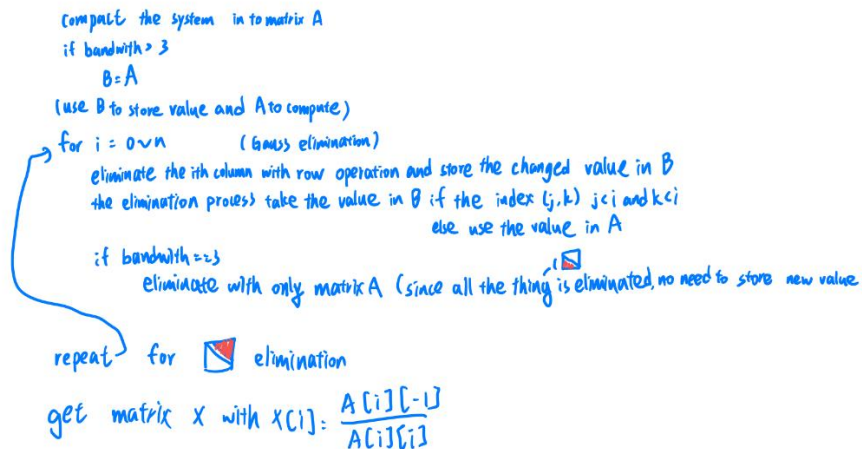 compact the system in to matrix A
if bandwith > 3
B = A
(use B to store value and A to compute)
for i = 0 ~ n (Gauss elimination)
eliminate the ith column with row operation and store the changed value in B
the elimination process take the value in B if the index (j,k) j<i and k<i
else use the value in A
if bandwith ==3
eliminate with only matrix A (since all the thing is eliminated, no need to store new value
repeat for elimination
get matrix X with X[i] = A[i][-1] / A[i][i]